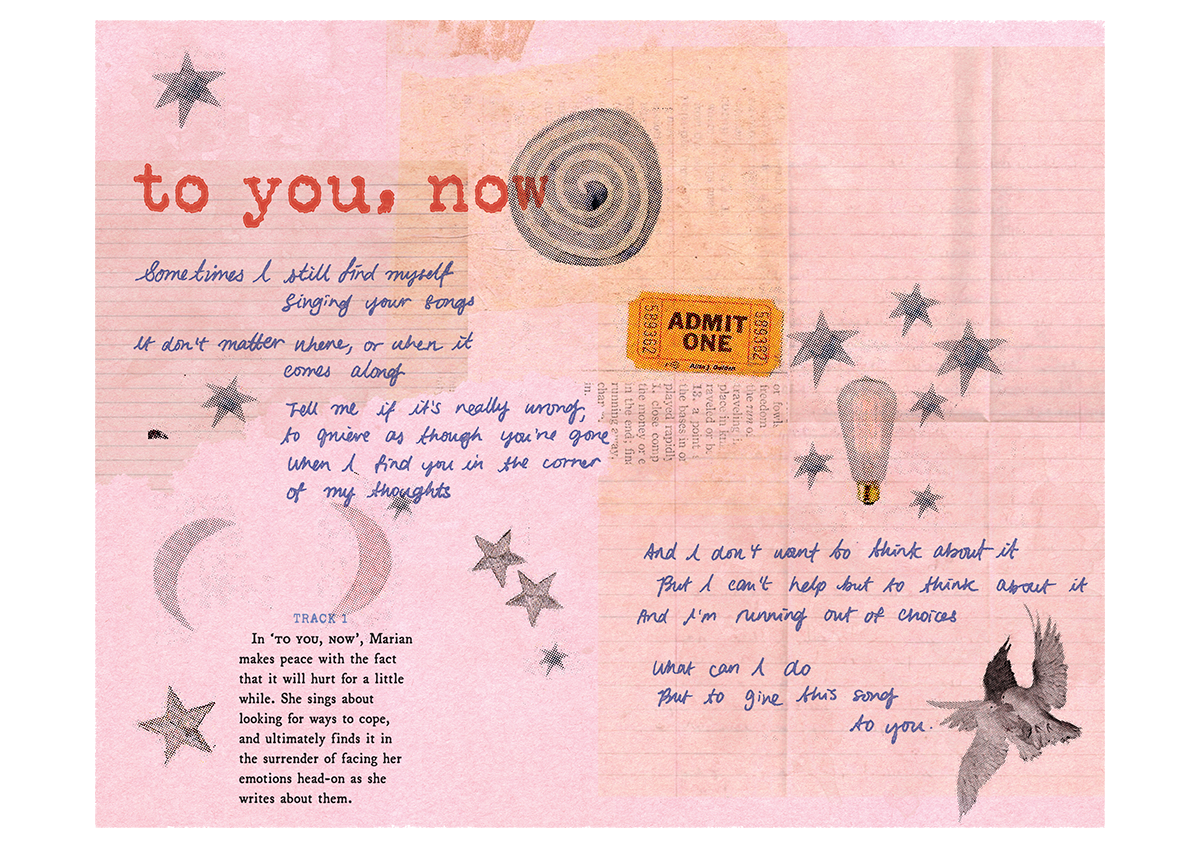 to you, now
Sometimes I still find myself
singing your songs
It don't matter where, or when it
comes along
Tell me if it's really wrong,
to grieve as though you're gone
When I find you in the corner
of my thoughts
TRACK 1
In ‘TO YOU, NOW’, Marian
makes peace with the fact
that it will hurt for a little
while. She sings about
looking for ways to cope,
and ultimately finds it in
the surrender of facing her
emotions head-on as she
writes about them.
589362
ADMIT
ONE
589362
or fowl
freedom
the run of
traveling
place in
raveled or b
13. a point
the bases in
played rapidly
1. close comp
the money or
in the end, fin
running away,
And I don't want to think about it
But I can't help but to think about it
And I'm running out of choices
What can I do
But to give this song
to you.